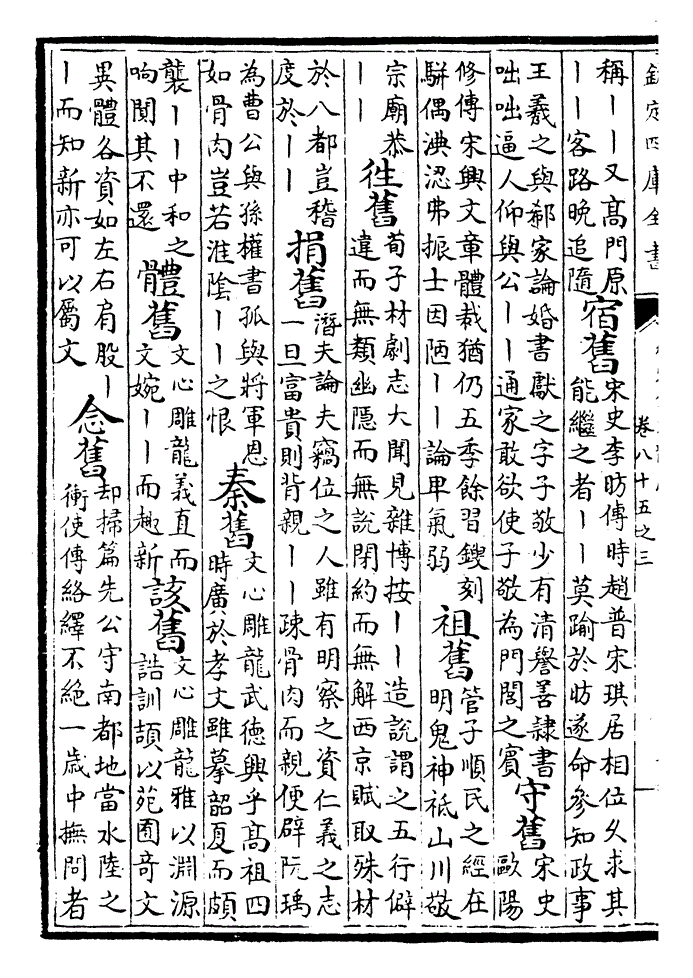 欽定四庫全書
卷八十五之三
稱丨丨又高門原
丨丨客路晚追隨
宿舊
宋史李昉傳時趙普宋琪居相位久求其
能繼之者丨丨莫踰於昉遂命參知政事
王羲之與郗家論婚書獻之字子敬少有清譽善隸書
咄咄逼人仰與公丨丨通家敢欲使子敬為門閭之賓
守舊
宋史
歐陽
修傳宋興文章體裁猶仍五季餘習鎪刻
駢偶淟涊弗振士因陋丨丨論卑氣弱
祖舊
管子順民之經在
明鬼神祗山川敬
宗廟恭
丨丨
徃舊
荀子材劇志大聞見雜博按丨丨造說謂之五行僻
違而無類幽隱而無說閉約而無解西京賦取殊材
於八都豈稽
度於丨丨
捐舊
潛夫論夫竊位之人雖有明察之資仁義之志
一旦富貴則背親丨丨疎骨肉而親便辟阮瑀
為曹公與孫權書孤與將軍恩
如骨肉豈若淮陰丨丨之恨
秦舊
文心雕龍武德興乎高祖四
時廣於孝文雖摹韶夏而頗
襲丨丨中和之
响閴其不還
體舊
文心雕龍義直而
文婉丨丨而趣新
該舊
文心雕龍雅以淵源
詁訓頡以苑囿奇文
異體各資如左右肩股丨
丨而知新亦可以屬文
念舊
却掃篇先公守南都地當水陸之
衝使傳絡繹不絕一歲中撫問者